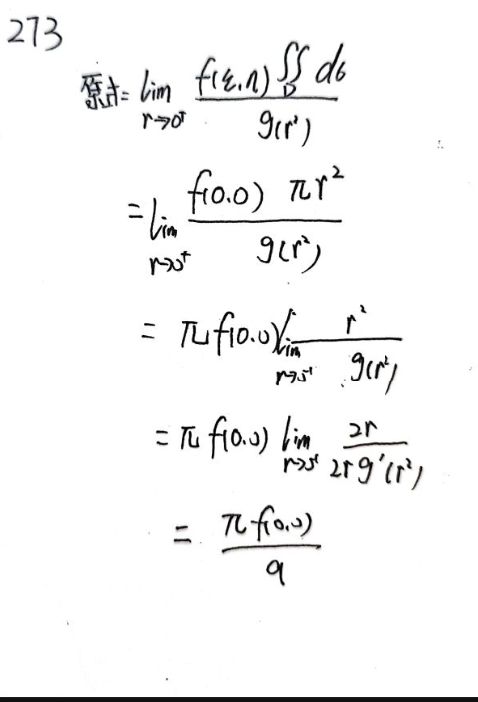 273
原式= lim r→0⁺ f(ξ.η)∬_D dσ / g(r²)
= lim r→0⁺ f(0.0) πr² / g(r²)
= πf(0.0) lim r→0⁺ r² / g(r²)
= πf(0.0) lim r→0⁺ 2r / 2rg'(r²)
= πf(0.0) / a